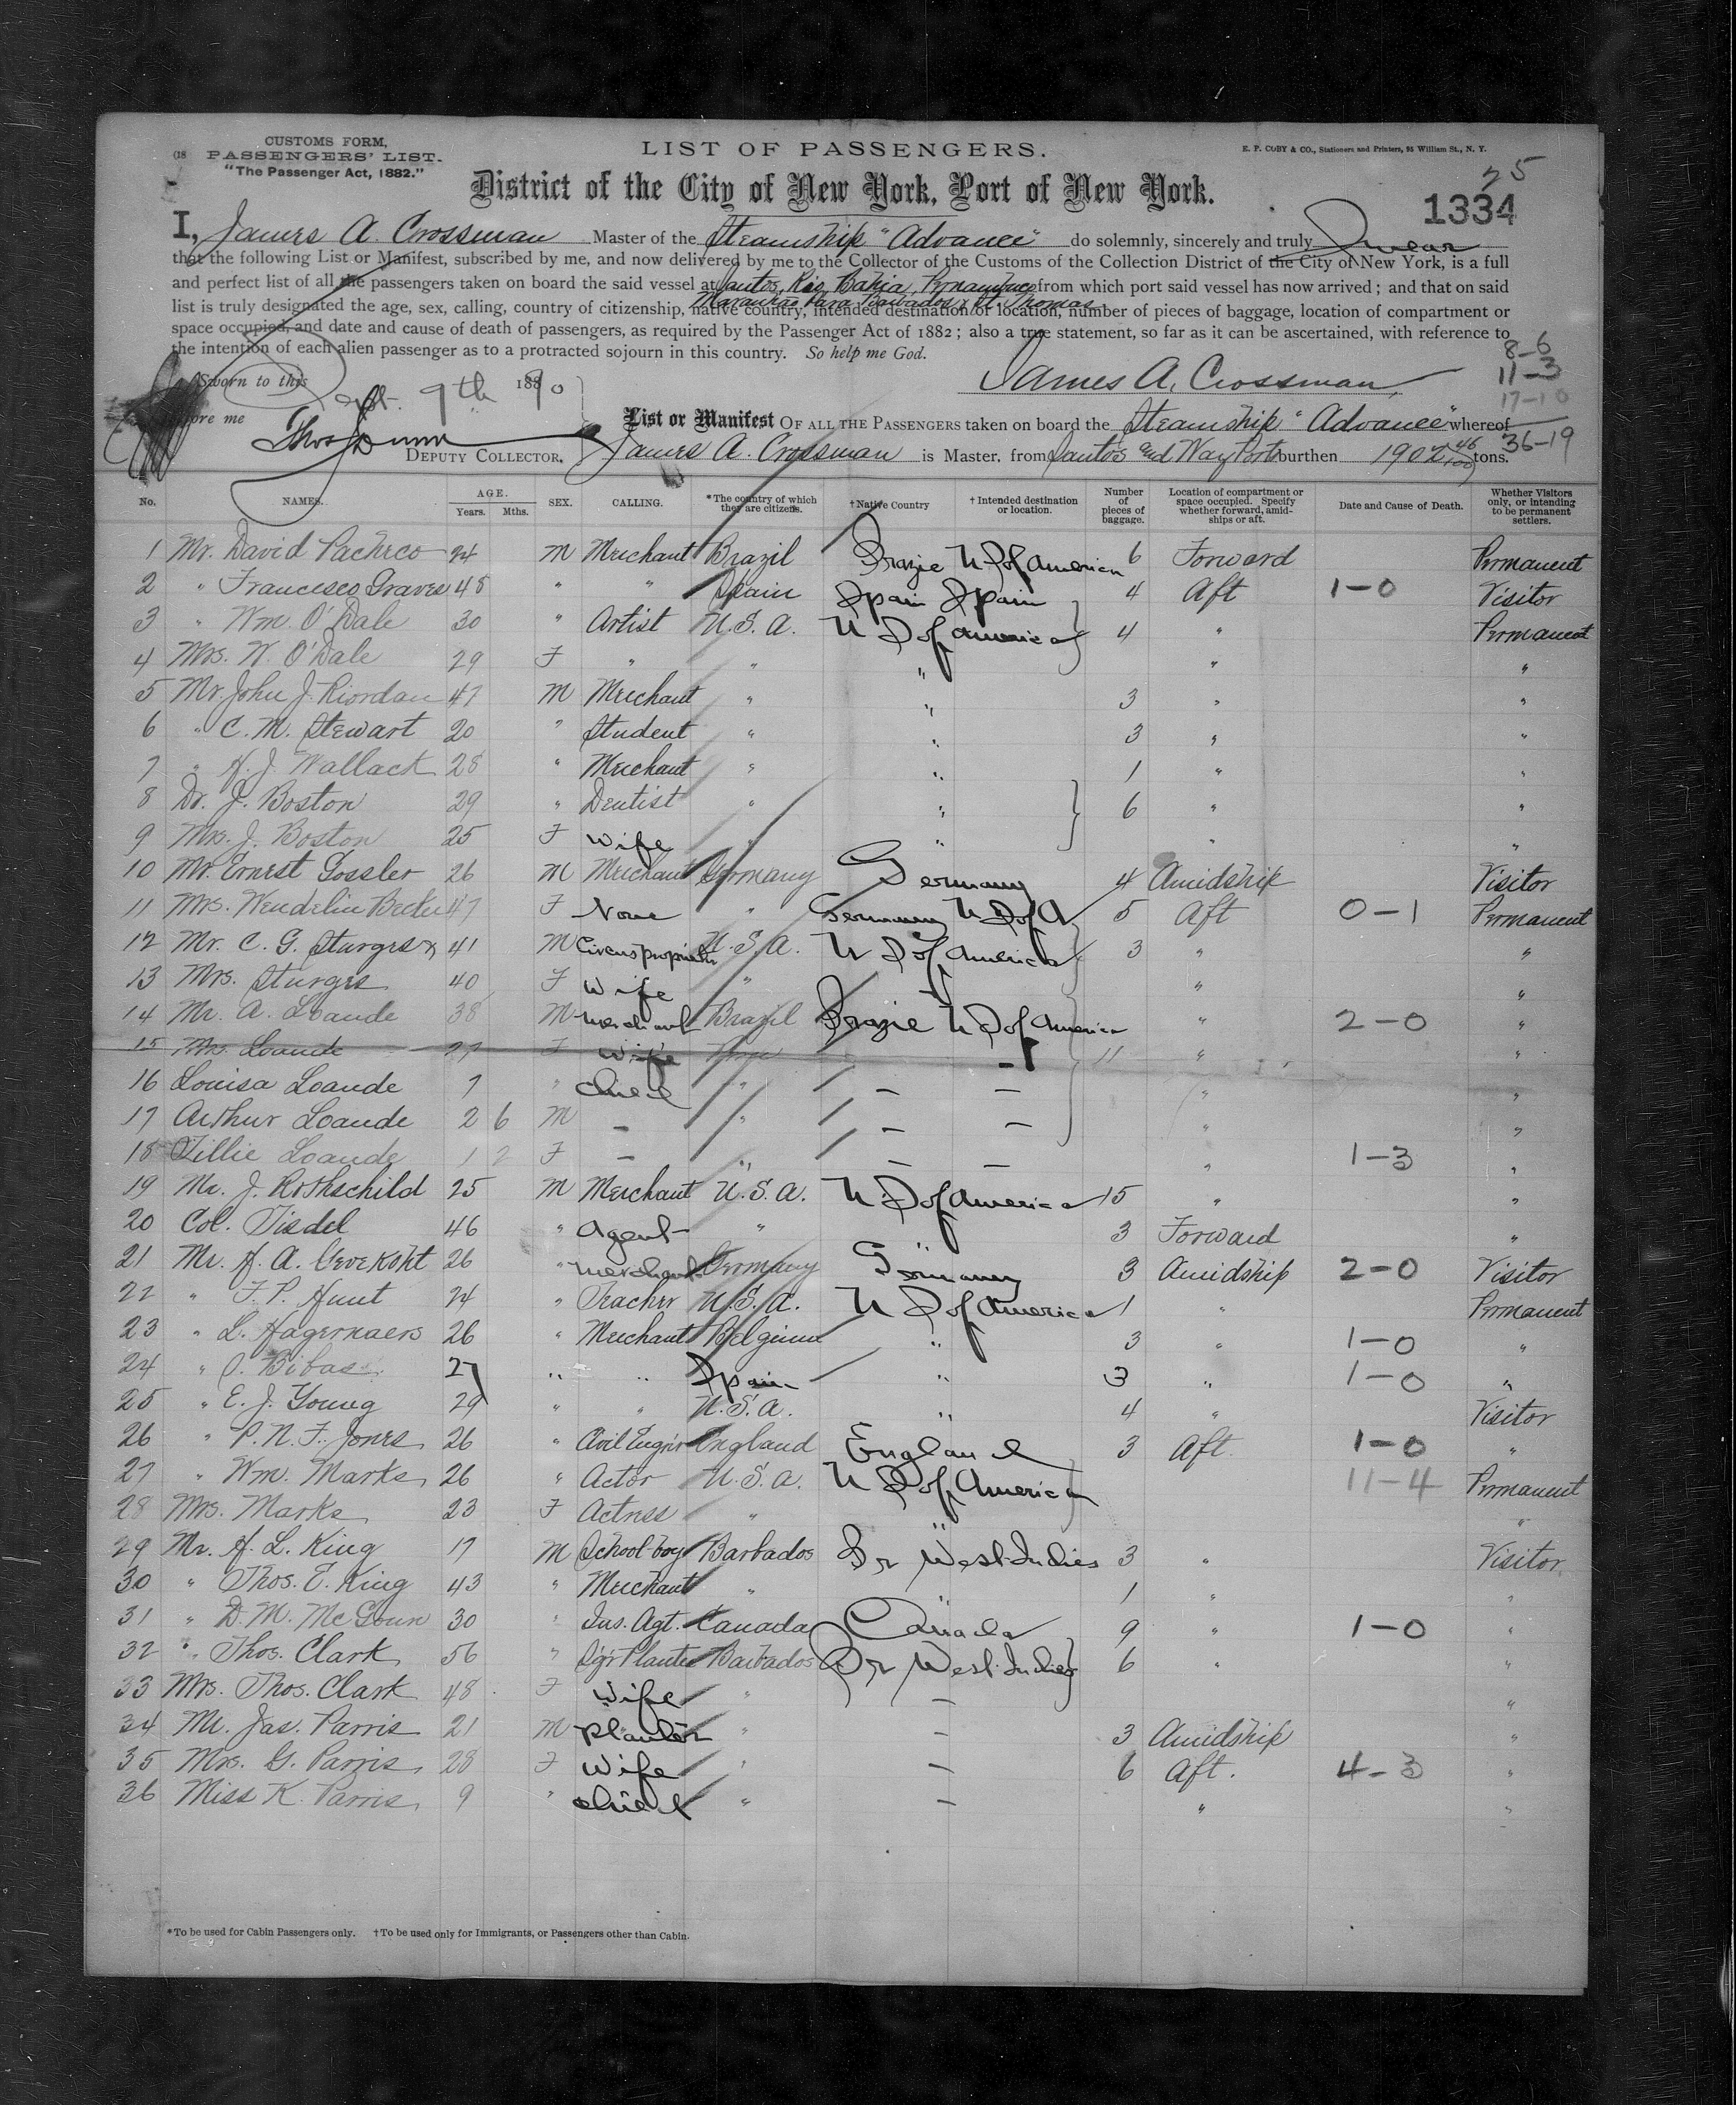 CUSTOMS FORM,
PASSENGERS' LIST.
"The Passenger Act, 1882."
LIST OF PASSENGERS.
E. P. COBY & CO., Stationers and Printers, 95 William St., N. Y.
25
1334
District of the City of New York, Port of New York.
I, James A. Crossman Master of the Steamship "Advance" do solemnly, sincerely and truly Swear
that the following List or Manifest, subscribed by me, and now delivered by me to the Collector of the Customs of the Collection District of the City of New York, is a full
and perfect list of all the passengers taken on board the said vessel at Santos, Rio, Bahia, Pernambuco from which port said vessel has now arrived; and that on said
Maranhao, Para, Barbados & St. Thomas
list is truly designated the age, sex, calling, country of citizenship, native country, intended destination or location, number of pieces of baggage, location of compartment or
space occupied, and date and cause of death of passengers, as required by the Passenger Act of 1882; also a true statement, so far as it can be ascertained, with reference to
the intention of each alien passenger as to a protracted sojourn in this country. So help me God.
8-6
11-3
17-10
36-19
Sworn to this Sept. 9th 1890
James A. Crossman
before me
DEPUTY COLLECTOR.
List or Manifest OF ALL THE PASSENGERS taken on board the Steamship "Advance" whereof
James A. Crossman is Master, from Santos and Way Ports burthen 1902 46/100 tons.
No. NAMES. AGE. Years. Mths. SEX. CALLING. *The country of which they are citizens. †Native Country †Intended destination or location. Number of pieces of baggage. Location of compartment or space occupied. Specify whether forward, amidships or aft. Date and Cause of Death. Whether Visitors only, or intending to be permanent settlers.
1 Mr. David Pacheco 24 M Merchant Brazil Brazie U S of America 6 Forward Permanent
2 " Francisco Graves 48 " " Spain Spain Spain 4 Aft 1-0 Visitor
3 " Wm. O'Dale 30 " Artist U.S.A. U S of America 4 " Permanent
4 Mrs. W. O'Dale 29 F " " " " "
5 Mr. John J. Riordan 47 M Merchant " " 3 " "
6 " C. M. Stewart 20 " Student " " 3 " "
7 " H. J. Wallack 28 " Merchant " " 1 " "
8 Dr. J. Boston 29 " Dentist " " 6 " "
9 Mrs. J. Boston 25 F Wife " " " "
10 Mr. Ernest Gossler 26 M Merchant Germany Germany 4 Amidship Visitor
11 Mrs. Wendelin Becker 47 F None " Germany U S of A 5 Aft 0-1 Permanent
12 Mr. C. G. Sturgis 41 M Circus proprietor U.S.A. U S of America 3 " "
13 Mrs. Sturgis 40 F Wife " " " "
14 Mr. A. Loande 38 M Merchant Brazil Brazie U S of America " 2-0 "
15 Mrs. Loande 27 F Wife 11 " "
16 Louisa Loande 7 " Child " — — " "
17 Arthur Loande 2 6 M — " — — " "
18 Tillie Loande 1 2 F — " — — " 1-3 "
19 Mr. J. Rothschild 25 M Merchant U.S.A. U S of America 15 " "
20 Col. Tisdel 46 " Agent " " 3 Forward "
21 Mr. H. A. 26 " Merchant Germany Germany 3 Amidship 2-0 Visitor
22 " F. P. Hunt 24 " Teacher U.S.A. U S of America 1 " Permanent
23 " L. Hagernaers 26 " Merchant Belgium " 3 " 1-0 "
24 " Bibas 27 " " Spain " 3 " 1-0 "
25 " E. J. Young 29 " " U.S.A. " 4 " Visitor
26 " P. N. F. Jones 26 " Civil Eng'r England England 3 Aft. 1-0 "
27 " Wm. Marks 26 " Actor U.S.A. U S of America 11-4 Permanent
28 Mrs. Marks 23 F Actress " " "
29 Mr. H. L. King 17 M School-boy Barbados Br West-Indies 3 " Visitor
30 " Thos. E. King 43 " Merchant " " 1 " "
31 " D. M. McGoun 30 " Ins. Agt. Canada Canada 9 " 1-0 "
32 " Thos. Clark 56 " Sg'r Planter Barbados Br West-Indies 6 " "
33 Mrs. Thos. Clark 48 F Wife " — "
34 Mr. Jas. Parris 21 M planter " — 3 Amidship "
35 Mrs. G. Parris 28 F Wife " — 6 Aft. 4-3 "
36 Miss K. Parris 9 " child " — " "
*To be used for Cabin Passengers only. †To be used only for Immigrants, or Passengers other than Cabin.